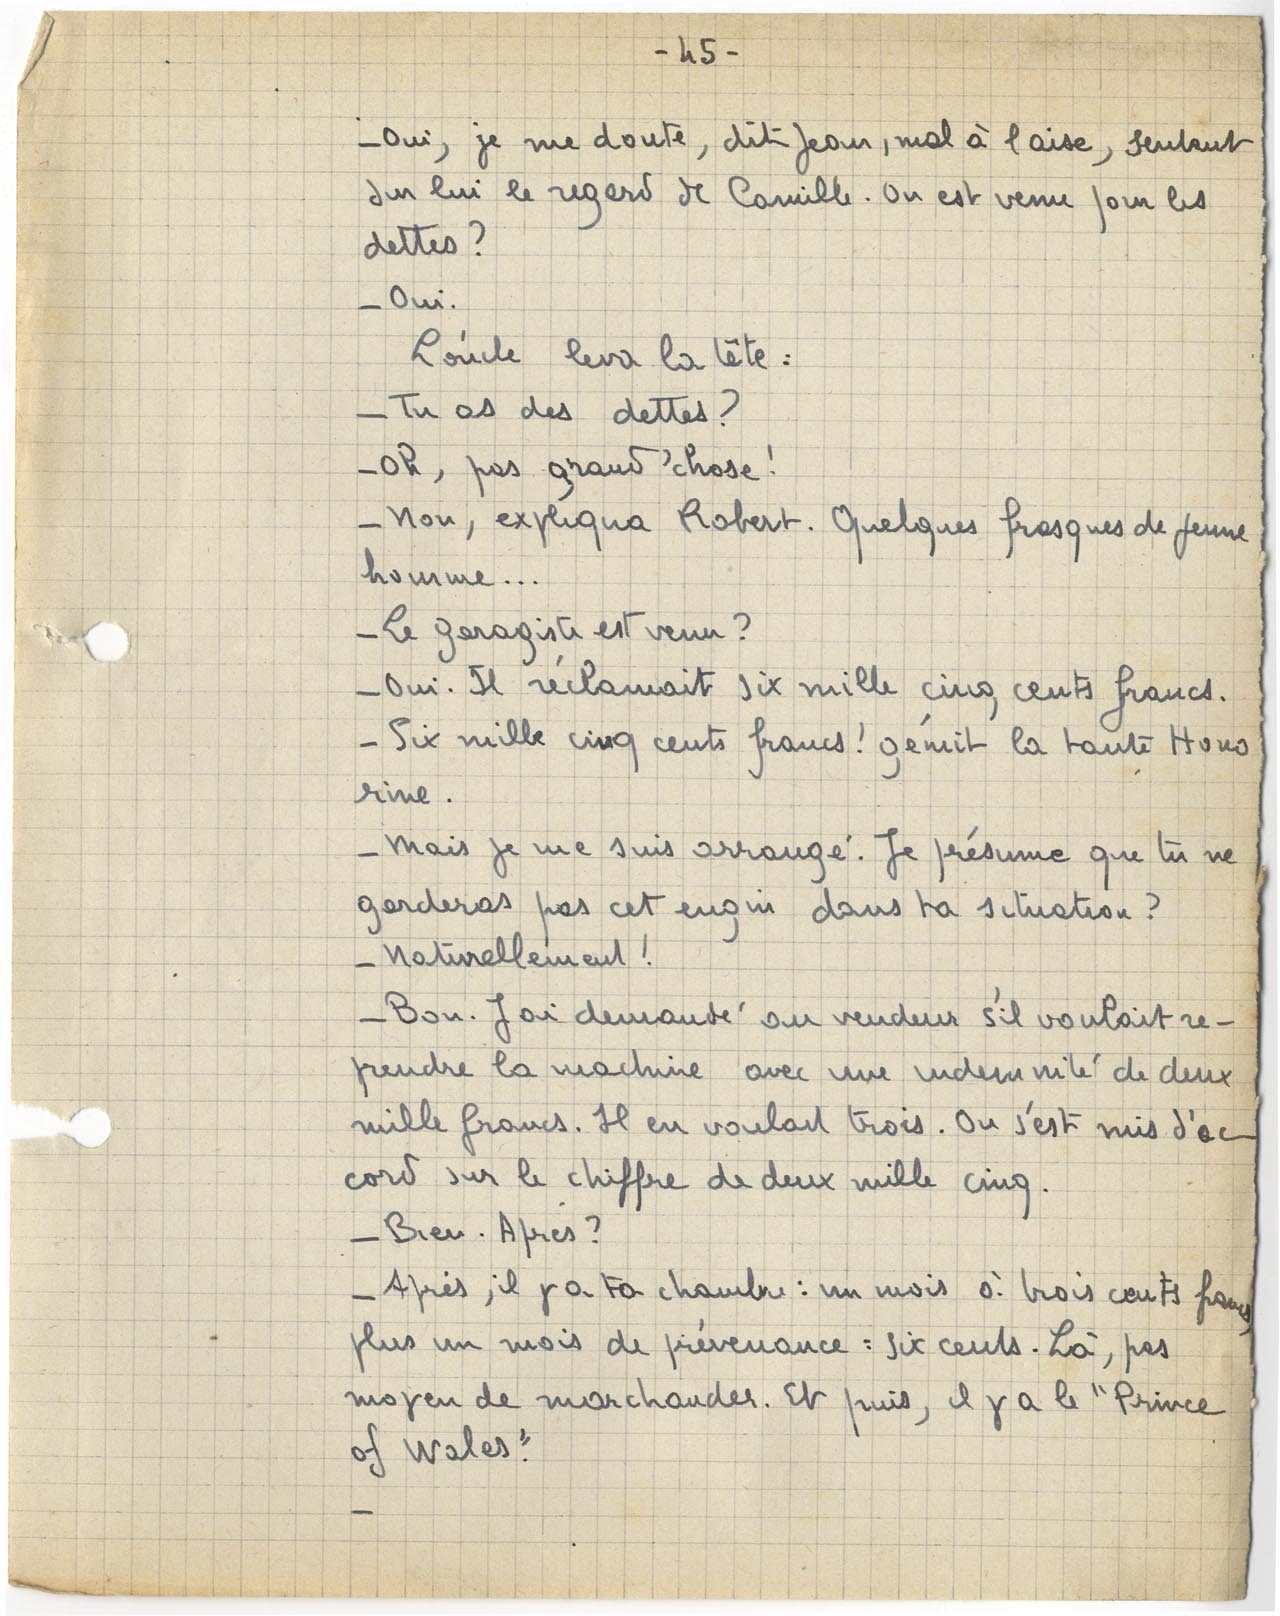 - 45 -
_ Oui, je me doute, dit Jean, mal à l'aise, sentant
sur lui le regard de Camille. On est venu pour les
dettes ?
_ Oui.
L'oncle leva la tête :
_ Tu as des dettes ?
_ Oh, pas grand'chose !
_ Non, expliqua Robert. Quelques frasques de jeune
homme...
_ Le garagiste est venu ?
_ Oui. Il réclamait six mille cinq cents francs.
_ Six mille cinq cents francs ! gémit la tante Hono
rine.
_ Mais je me suis arrangé. Je présume que tu ne
garderas pas cet engin dans ta situation ?
_ Naturellement !
_ Bon. J'ai demandé au vendeur s'il voulait re-
prendre la machine avec une indemnité de deux
mille francs. Il en voulait trois. On s'est mis d'ac-
cord sur le chiffre de deux mille cinq.
_ Bien. Après ?
_ Après, il y a ta chambre : un mois à trois cents francs,
plus un mois de prévenance : six cents. Là, pas
moyen de marchander. Et puis, il y a le "Prince
of Wales".
_